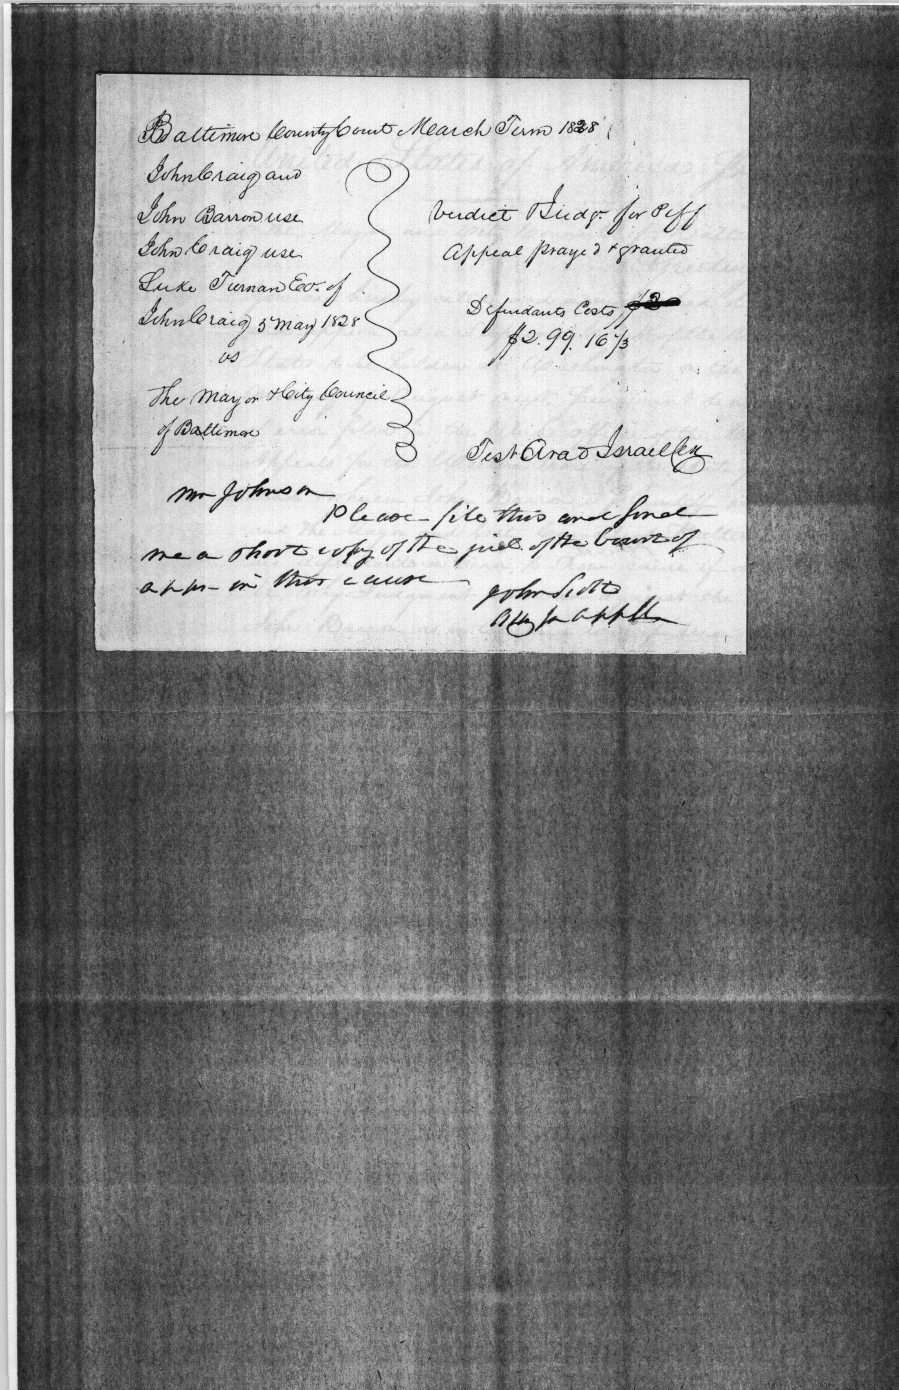 Baltimore County Court March Term 1828
John Craig and
John Barron use
John Craig use
Luke Tiernan Exr. of
John Craig 5 May 1828
vs
The Mayor & City Council
of Baltimore
Verdict & Judgt. for Plff
Appeal prayed & granted
Defendants Costs $2
$2.99.16⅔
Test Ara Israel Clk
Mr Johnson
Please file this and send
me a short copy of the of the Court of
apps in this cause
John Scott
Atty for